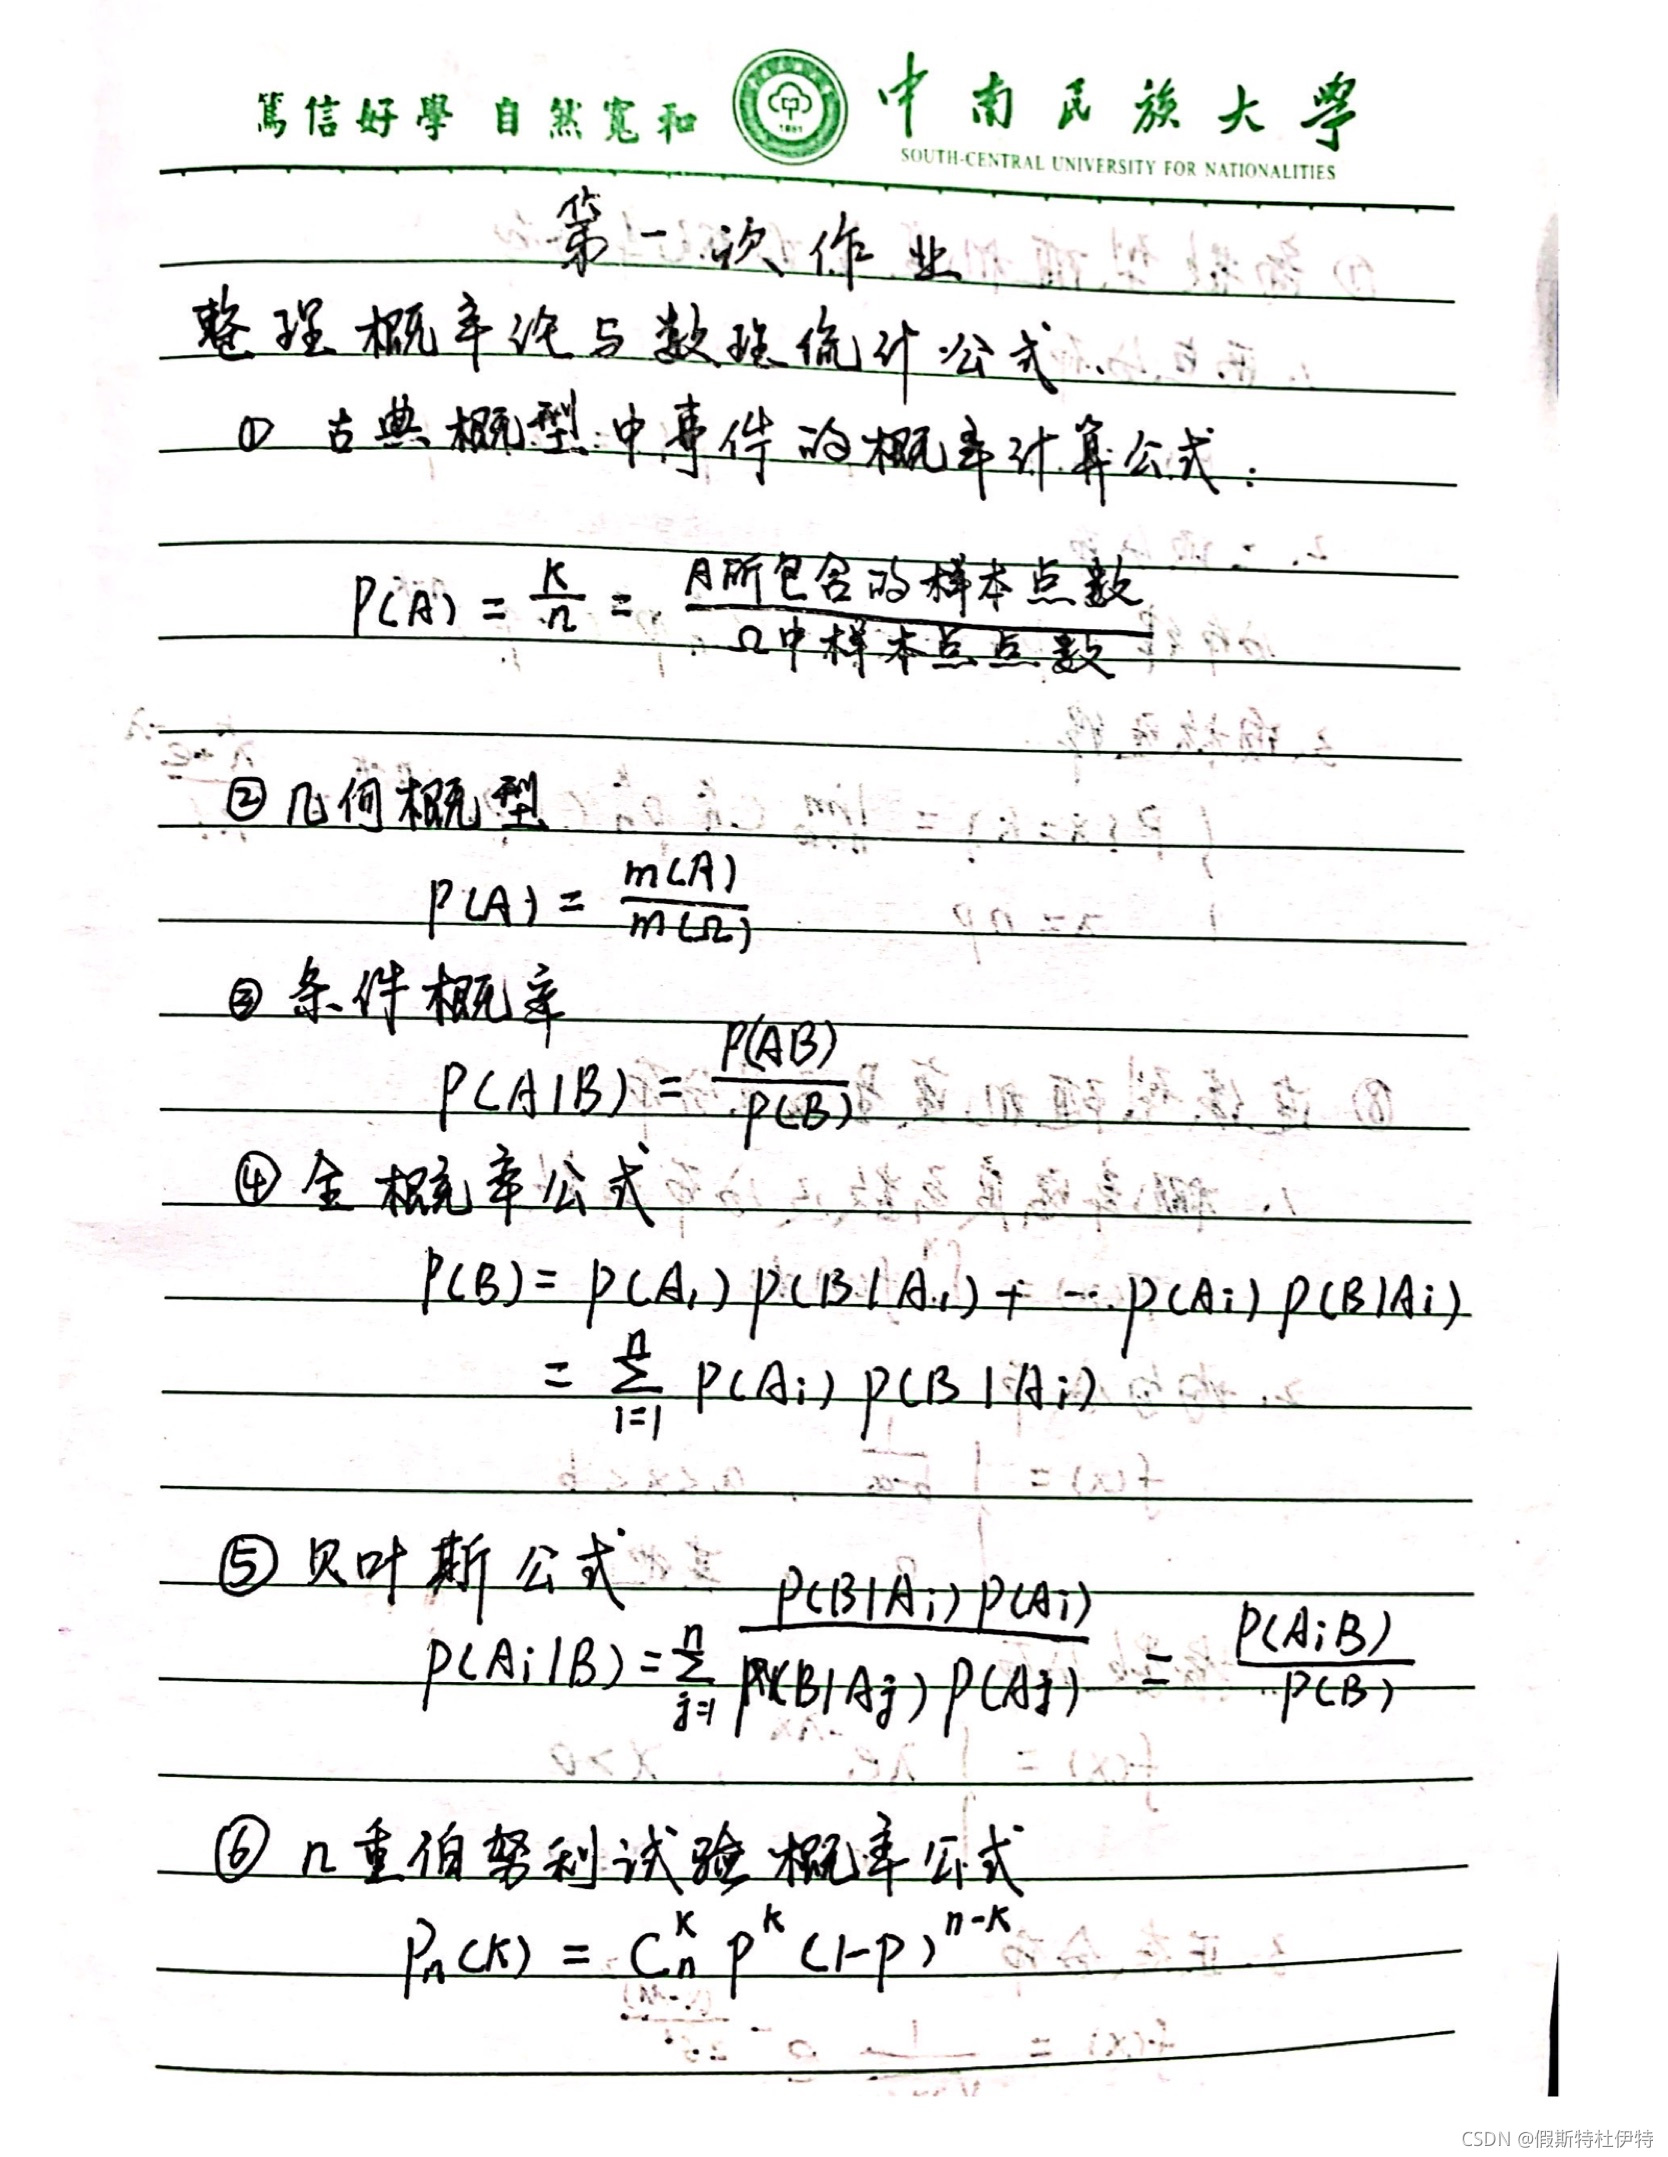 篤信好學 自然寬和 中南民族大學
SOUTH-CENTRAL UNIVERSITY FOR NATIONALITIES
第一次作业
整理概率论与数理统计公式.
① 古典概型中事件的概率计算公式:
P(A) = K/n = A所包含的样本点数/Ω中样本点点数
② 几何概型
P(A) = m(A)/m(Ω)
③ 条件概率
P(A|B) = P(AB)/P(B)
④ 全概率公式
P(B) = P(A₁) P(B|A₁) + … P(Ai) P(B|Ai)
= Σ_{i=1}^{n} P(Ai) P(B|Ai)
⑤ 贝叶斯公式
P(Ai|B) = Σ_{j=1}^{n} P(B|Ai) P(Ai)/P(B|Aj) P(Aj) = P(AiB)/P(B)
⑥ n重伯努利试验概率公式
Pn(K) = C_n^K P^K (1-P)^{n-K}
CSDN @假斯特杜伊特